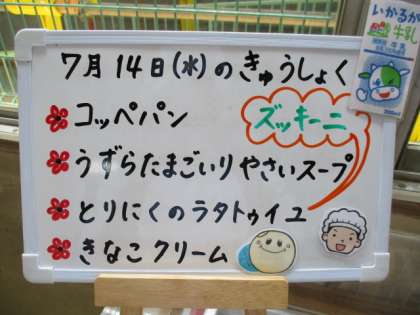 7月14日(水)のきゅうしょく
コッペパン
ズッキーニ
うずらたまごいりやさいスープ
とりにくのラタトゥイユ
きなこクリーム
いかるが
牛乳